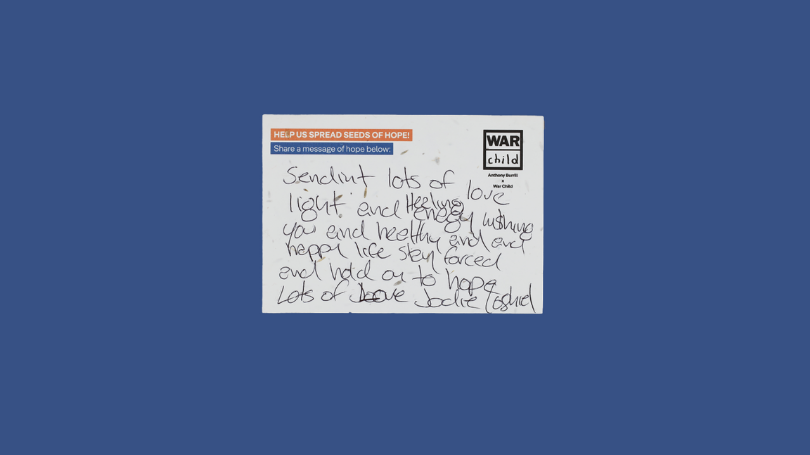 HELP US SPREAD SEEDS OF HOPE!
Share a message of hope below:
WAR
child
Anthony Burrill
x
War Child
Sendint lots of love
light and Heeling energy wishing
you and heelthy and and
happy life stay forced
and hold on to hope
Lots of Love Jodie